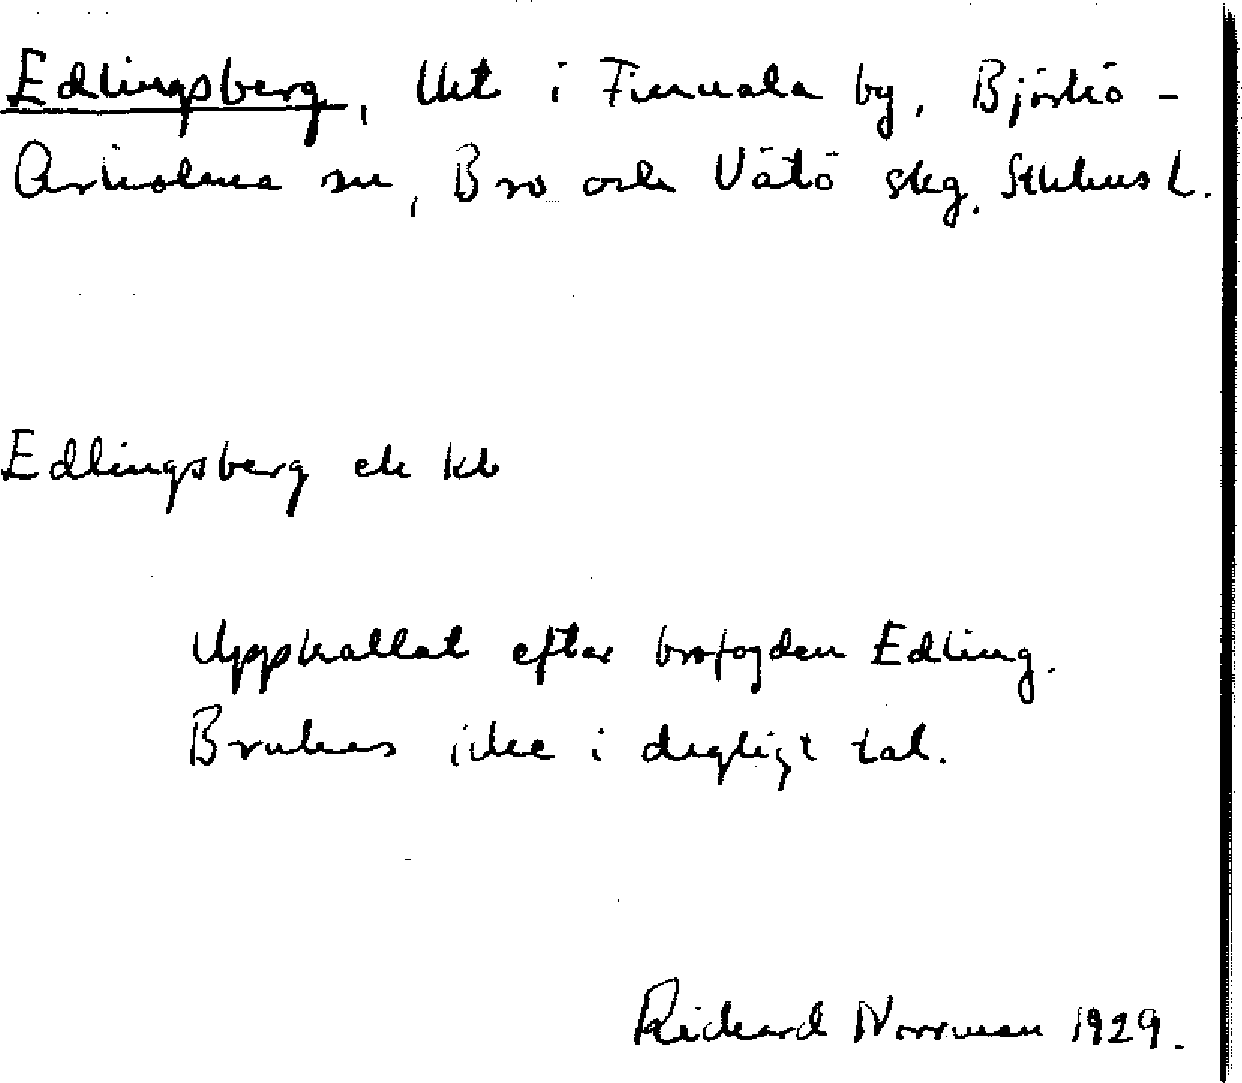 Edlingsberg, Lht i Finnala by, Björkö-
Arholma sn, Bro och Vätö skg. Sthlms l.
Edlingsberg ek kb
Uppkallat efter brofogden Edling.
Brukas icke i dagligt tal.
Richard Norrman 1929.